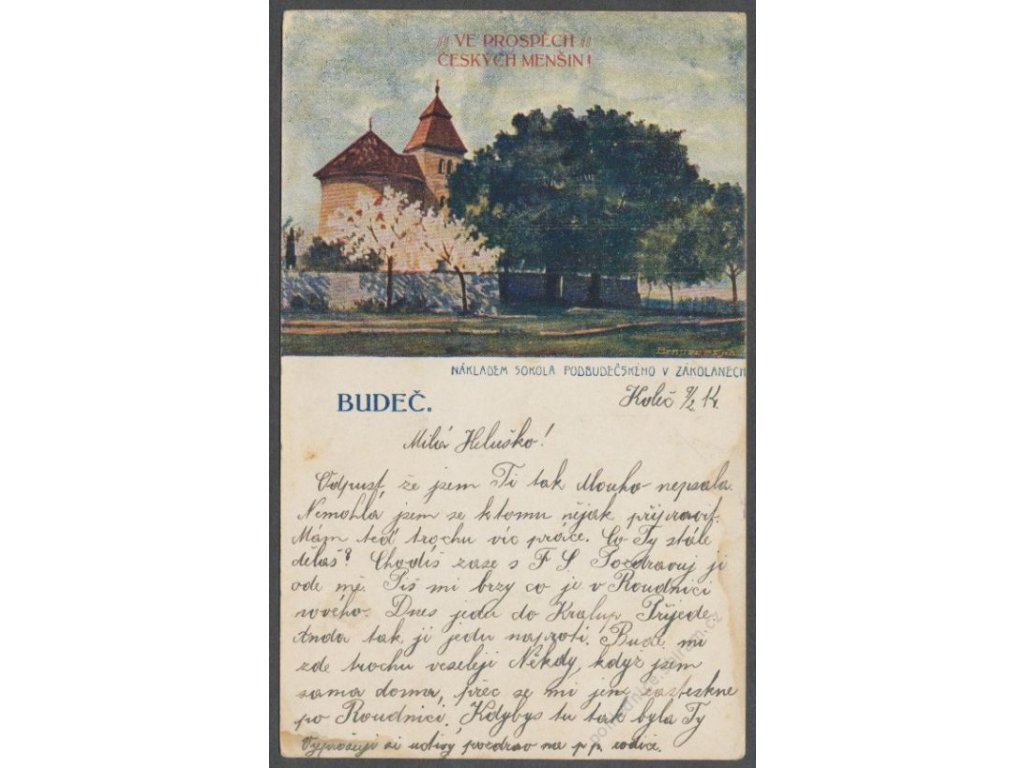 VE PROSPĚCH
ČESKÝCH MENŠIN!
NÁKLADEM SOKOLA PODBUDEČSKÉHO V ZÁKOLANECH
BUDEČ.
Koleč 9/2 14.
Milá Heluško!
Odpusť, že jsem Ti tak dlouho nepsala.
Nemohla jsem se k tomu nějak připravit.
Mám teď trochu víc práce. Co Ty stále
děláš? Chodíš zase s F S Pozdravuj ji
ode mě. Piš mi brzy co je v Roudnici
nového. Dnes jedu do Kralup. Přijede
Anda tak jí jedu naproti. Bude mi
zde trochu veseleji Někdy, když jsem
sama doma, přec se mi jen zasteskne
po Roudnici. Kdybys tu tak byla Ty
Vyprošuji si uctivý pozdrav na p. p. rodiče.